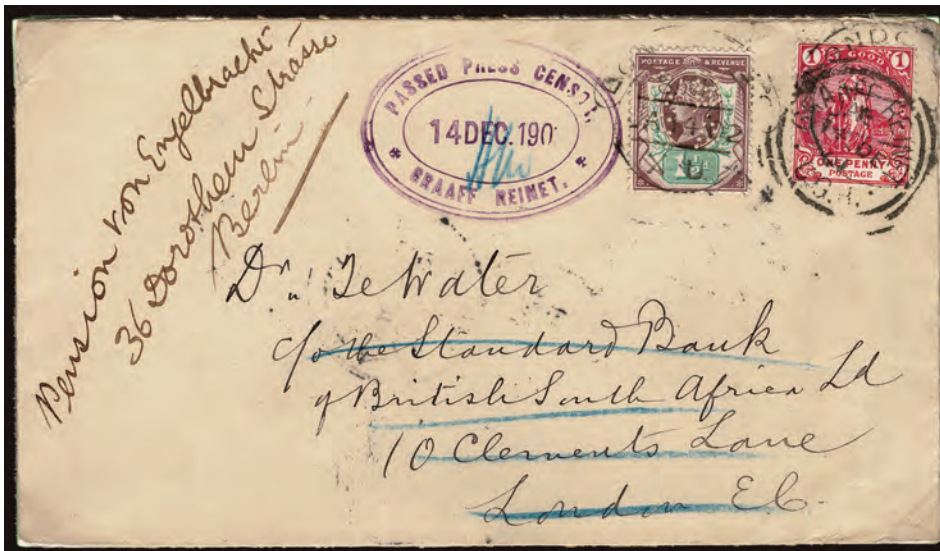 Pension von Engelbracht
36 Dorotheen Strasse
Berlin
PASSED PRESS CENSOR.
14 DEC. 190
* GRAAFF REINET. *
POSTAGE & REVENUE
1½d
1 GOOD 1
ONE PENNY
POSTAGE
Dr. Te Water
c/o the Standard Bank
of British South Africa Ld
10 Clements Lane
London E.C.